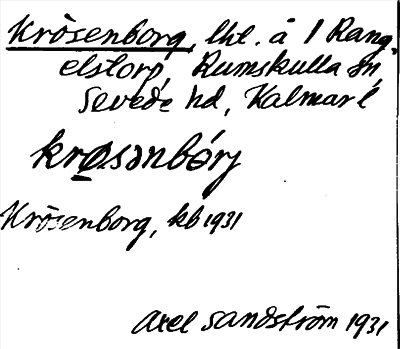 Krösenborg, lht. å 1 Rang-
elstorp, Rumskulla sn,
Sevede hd, Kalmar l
krøsənbórj
Krösenborg, kb 1931
Axel Sandström 1931